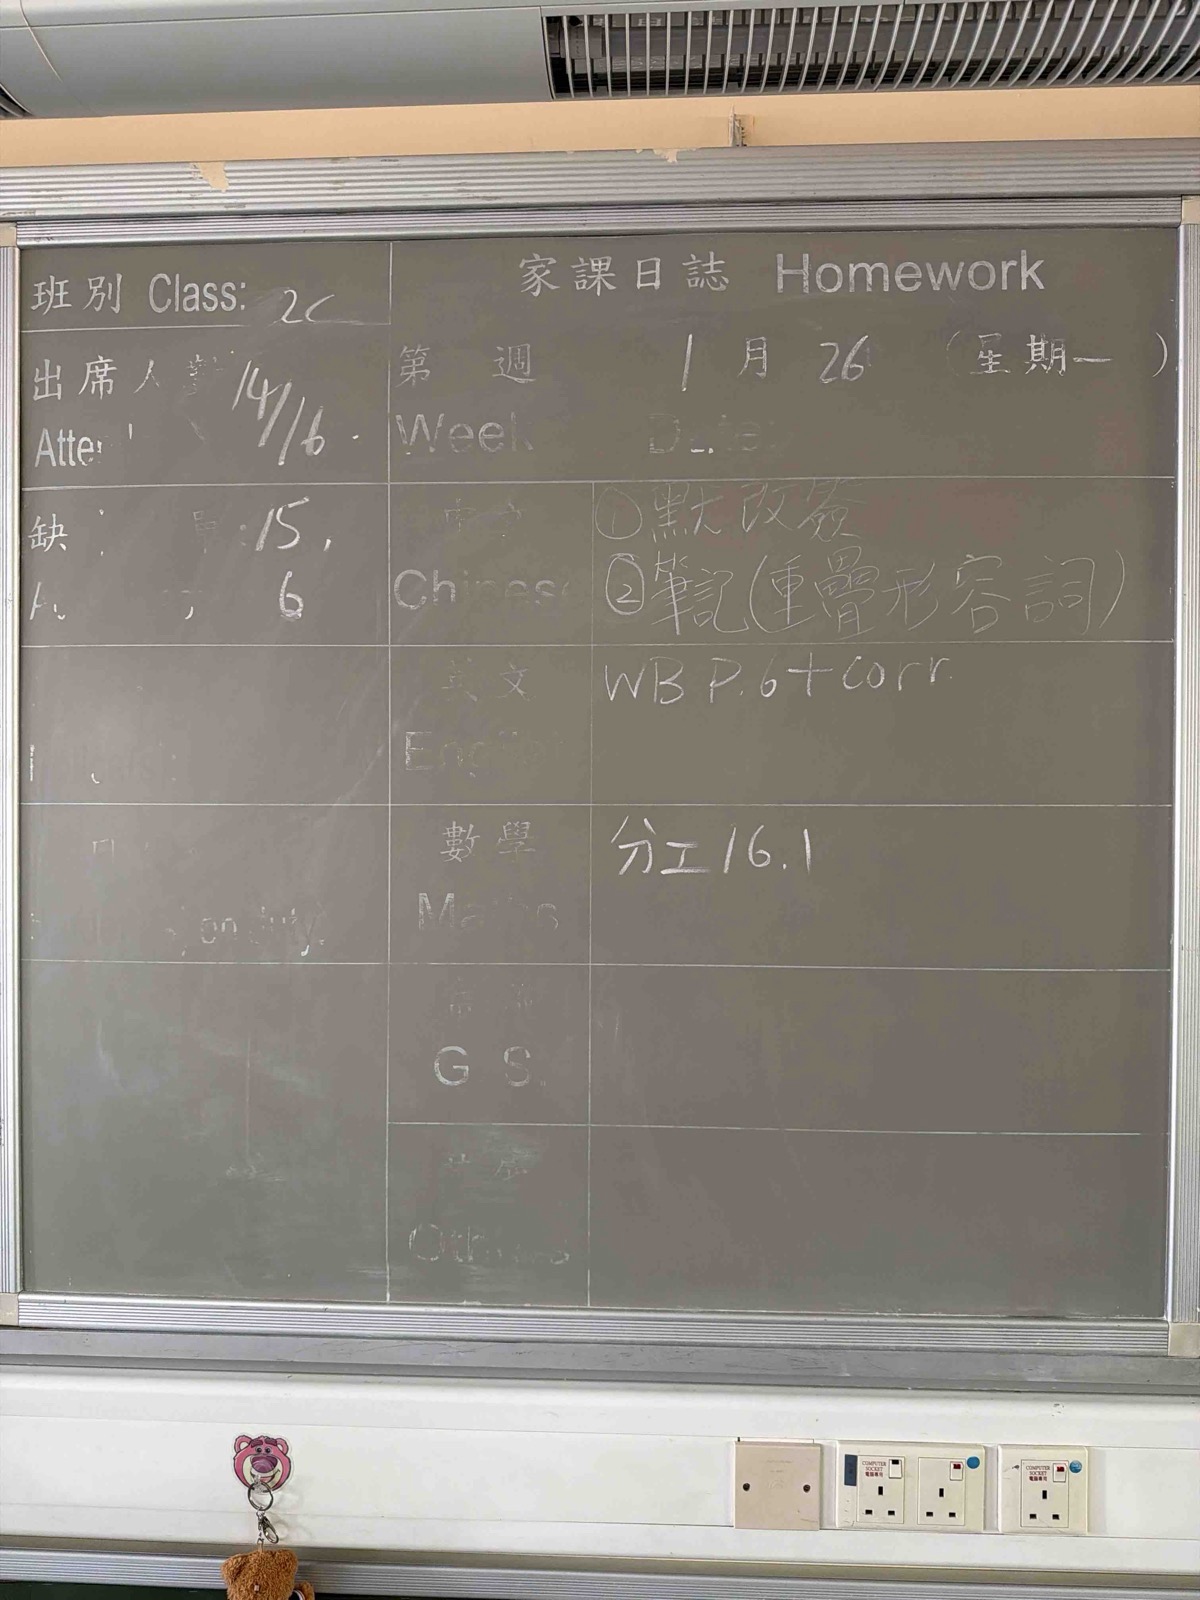 班別 Class: 2C
家課日誌 Homework
出席人數 14/16
第 週 1月26 (星期一)
Week Date:
缺 15,
6
中文 ①默改簽
Chinese ②筆記(重疊形容詞)
英文 WB P.6+corr.
English
數學 分工16.1
Maths
on duty
G S.
Others
COMPUTER SOCKET 電腦專用
COMPUTER SOCKET 電腦專用